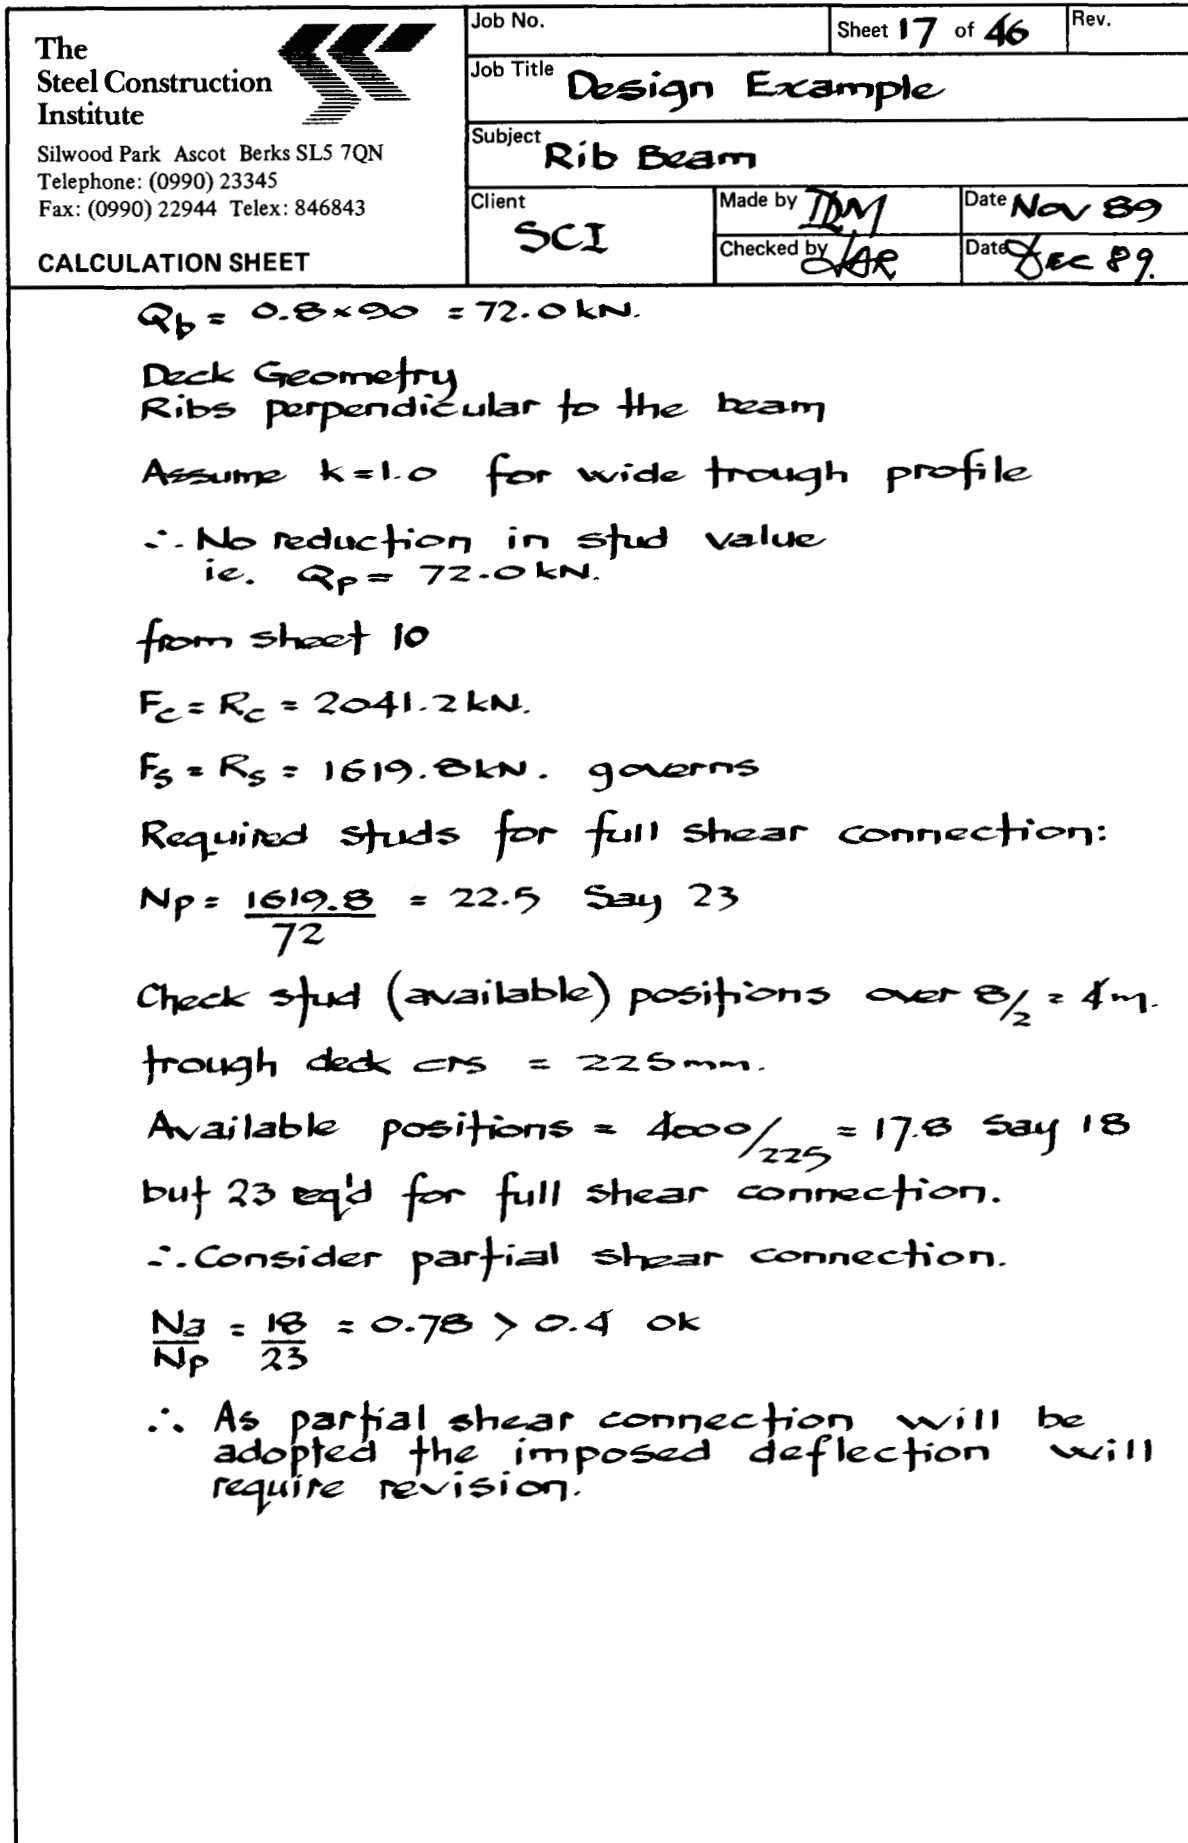 The
Steel Construction
Institute
Silwood Park Ascot Berks SL5 7QN
Telephone: (0990) 23345
Fax: (0990) 22944 Telex: 846843
CALCULATION SHEET
Job No.
Sheet 17 of 46
Rev.
Job Title Design Example
Subject Rib Beam
Client SCI
Made by IDM
Date Nov 89
Checked by
Date Dec 89.
Qb = 0.8×90 = 72.0 kN.
Deck Geometry
Ribs perpendicular to the beam
Assume k=1.0 for wide trough profile
∴ No reduction in stud value
ie. Qp = 72.0 kN.
from sheet 10
Fc = Rc = 2041.2 kN.
Fs = Rs = 1619.8 kN. governs
Required studs for full shear connection:
Np = 1619.8/72 = 22.5 Say 23
Check stud (available) positions over 8/2 = 4m.
trough deck crs = 225mm.
Available positions = 4000/225 = 17.8 Say 18
but 23 req'd for full shear connection.
∴ Consider partial shear connection.
Na/Np = 18/23 = 0.78 > 0.4 ok
∴ As partial shear connection will be
adopted the imposed deflection will
require revision.